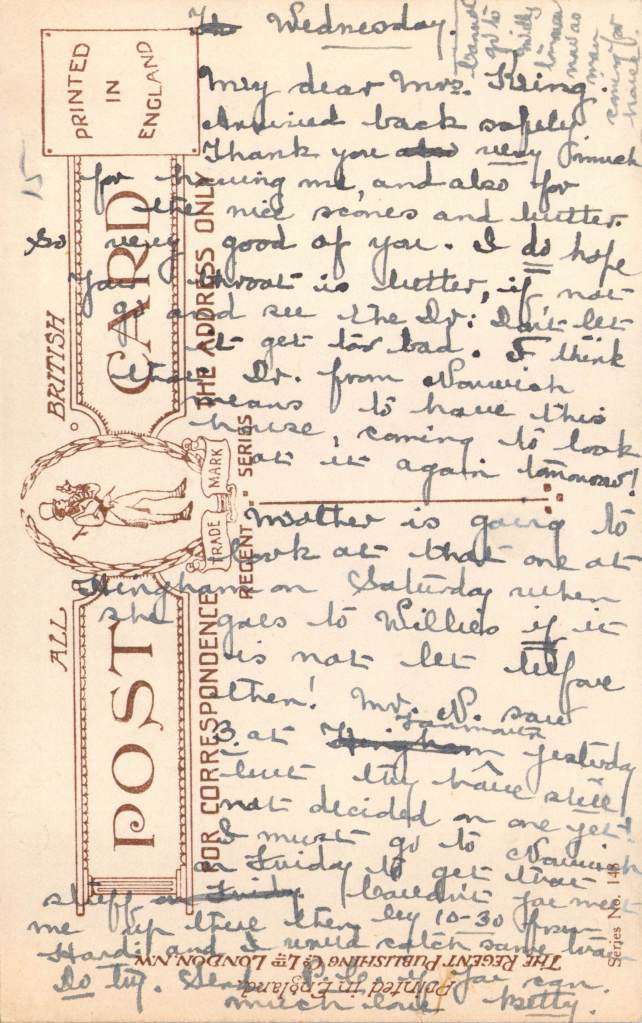 Wednesday.
Cannot
go to
now as
man
coming for
My dear Mrs. King.
Arrived back safely
Thank you very much
for having me, and also for
the nice scones and butter.
So very good of you. I do hope
your throat is better, if not
go and see the Dr: Don't let
it get too bad. I think
that Dr. from Norwich
means to have this
house, coming to look
at it again tomorrow!
Mother is going to
look at that one at
Hingham on Saturday when
she goes to Willies if it
is not let before
then! Mr. N. saw
3 at Hingham Yarmouth yesterday
but they have still
not decided on one yet!
I must go to Norwich
on Friday to get that
stuff on Friday Couldn't you meet
me up there then by 10-30 from
and I would catch same
Do try. if you can.
much love Betty.
PRINTED
IN
ENGLAND
ALL BRITISH
POST CARD
TRADE MARK
FOR CORRESPONDENCE
THE ADDRESS ONLY
"REGENT" SERIES
15
Series No. 148
THE REGENT PUBLISHING Co LTD LONDON. N.W.
Printed in England